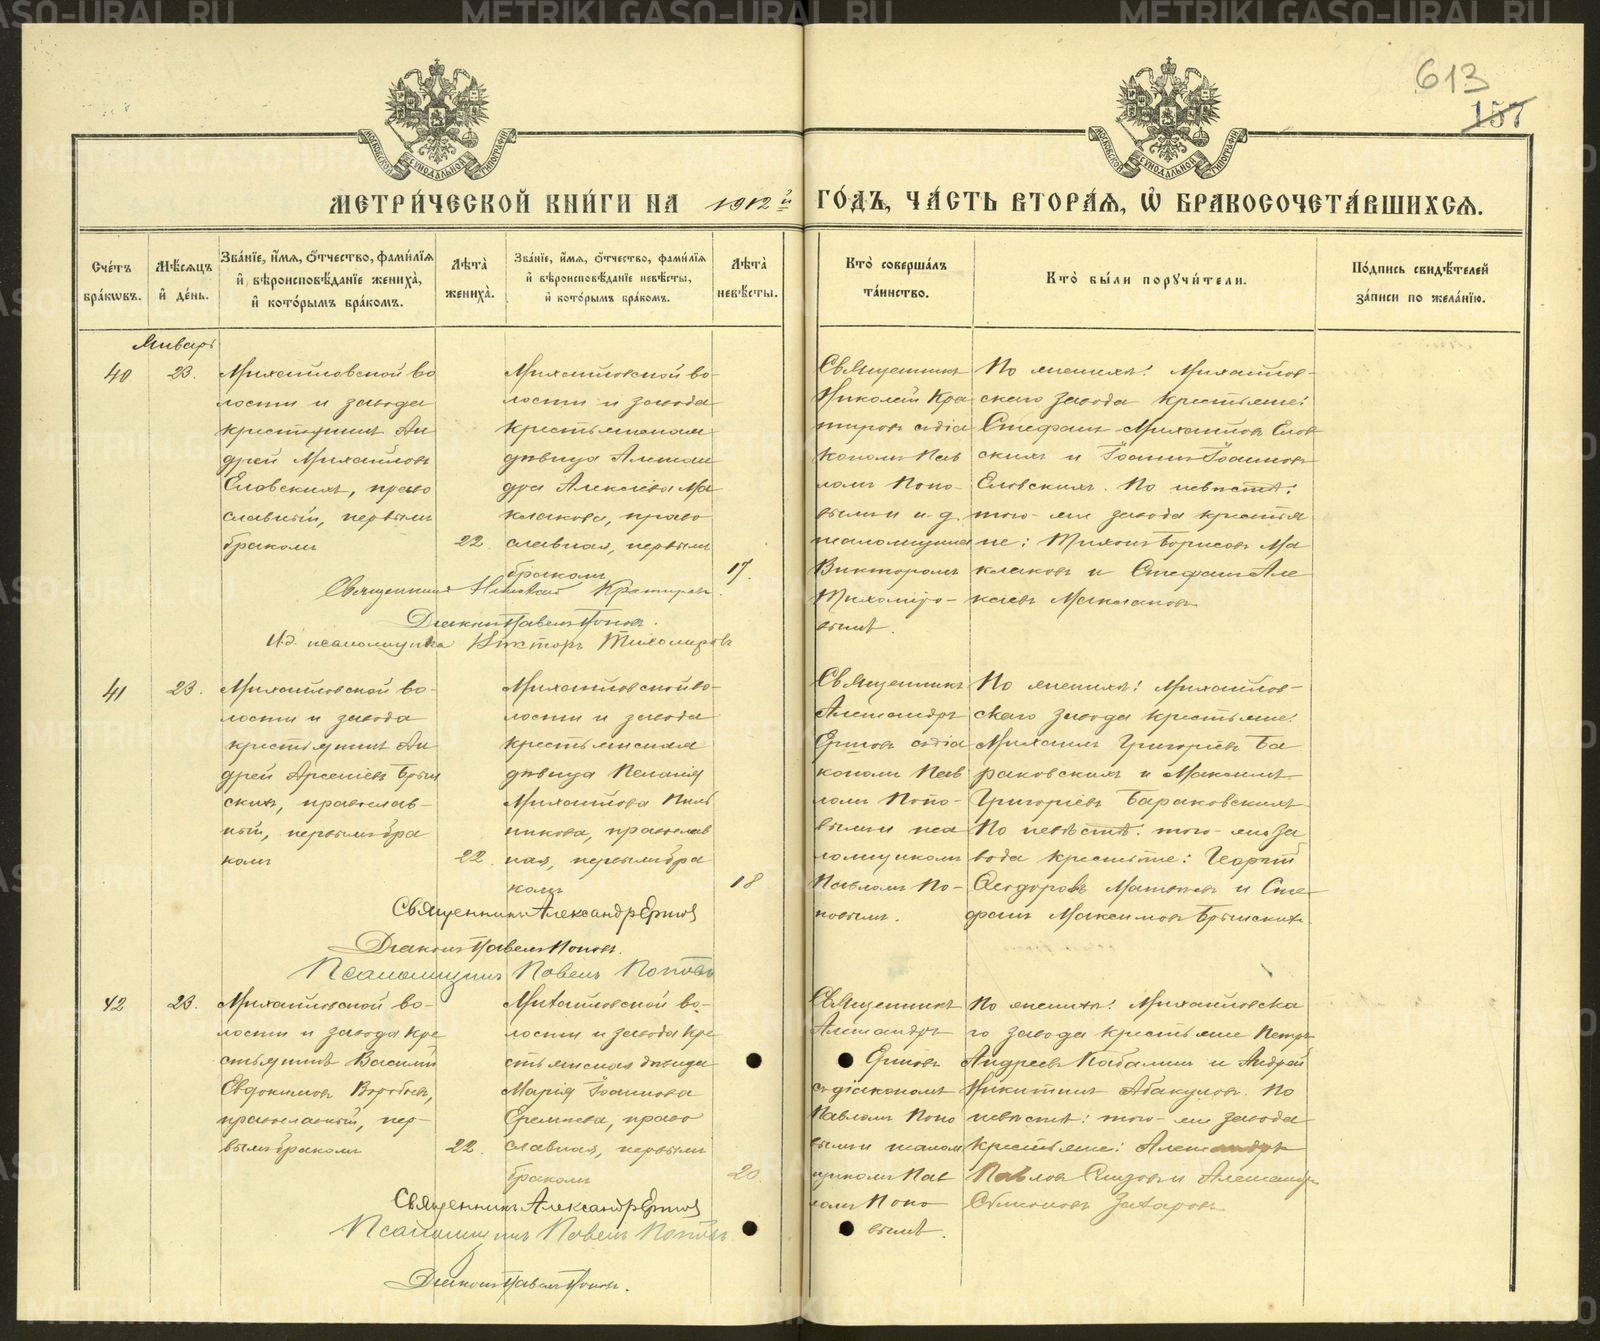 613
157
МЕТРИ́ЧЕСКОЙ КНИ́ГИ НА 1912й ГО́ДЪ, ЧА́СТЬ ВТОРА́Я, Ѡ БРАКОСОЧЕТА́ВШИХСЯ.
Сче́тъ бра́кѡвъ.
Мѣ́сяцъ и҆ де́нь.
Зва́нїе, и҆́мя, ѻ҆́тчество, фами́лїя и҆ вѣроисповѣ́данїе жениха̀, и҆ кото́рымъ бра́комъ.
Лѣ́та̀ жениха̀.
Зва́нїе, и҆́мя, ѻ҆́тчество, фами́лїя и҆ вѣроисповѣ́данїе невѣ́сты, и҆ кото́рымъ бра́комъ.
Лѣ́та̀ невѣ́сты.
Кто̀ соверша́лъ та́инство.
Кто̀ бы́ли пору́чи́тели.
По́дпись свидѣ́телей за́писи по жела́нїю.
Январь
40
23.
Михайловской во
лости и завода
крестьянинъ Ан
дрей Михайловъ
Еловскихъ, право
славный, первымъ
бракомъ
22.
Михайловской во-
лости и завода
крестьянская
дѣвица Алексан
дра Алексѣева Ма
клакова, право
славная, первымъ
бракомъ
17.
Священникъ
Николай Кра
тировъ съ діа
кономъ Пав
ломъ Попо-
вымъ и и. д.
псаломщика
Викторомъ
Тихоміро-
вымъ.
По женихѣ: Михайлов-
скаго завода крестьяне:
Стефанъ Михайловъ Елов
скихъ и Іоаннъ Іоанновъ
Еловскихъ. По невѣстѣ:
того-же завода крестья
не: Тихонъ Борисовъ Ма
клаковъ и Стефанъ Але
ксѣевъ Маклаковъ
Священникъ Николай Кратировъ.
Діаконъ Павелъ Поповъ.
И.д. псаломщика Викторъ Тихомировъ
41
23.
Михайловской во-
лости и завода
крестьянинъ Ан
дрей Арсеніевъ Брын
скихъ, православ-
ный, первымъ бра
комъ
22.
Михайловской во-
лости и завода
крестьянская
дѣвица Пелагія
Михайлова Пиль
никова, православ
ная, первымъ бра
комъ
18
Священникъ
Александръ
Ершовъ съ діа
кономъ Пав
ломъ Попо-
вымъ и пса
ломщикомъ
Павломъ По-
повымъ.
По женихѣ: Михайлов-
скаго завода крестьяне:
Михаилъ Григорьевъ Ба
раковскихъ и Максимъ
Григорьевъ Бараковскихъ
По невѣстѣ: того-же за
вода крестьяне: Георгій
Ѳеодоровъ и Сте
фанъ Максимовъ Брынскихъ
Священникъ Александръ Ершовъ
Діаконъ Павелъ Поповъ.
Псаломщикъ Павелъ Поповъ
42
23.
Михайловской во-
лости и завода кре
стьянинъ Василій
Евдокимовъ Воробьевъ,
православный, пер-
вымъ бракомъ
22.
Михайловской во-
лости и завода кре
стьянская дѣвица
Марія Іоаннова
Еремѣева, право
славная, первымъ
бракомъ
20.
Священникъ
Александръ
Ершовъ
съ діакономъ
Павломъ Попо
вымъ и псалом
щикомъ Пав
ломъ Попо
вымъ.
По женихѣ: Михайловска
го завода крестьяне Петръ
Андреевъ Кабалинъ и Андрей
Никитинъ Абакумовъ. По
невѣстѣ: того-же завода
крестьяне: Александръ
Павловъ Сизовъ и Александръ
Симоновъ Захаровъ
Священникъ Александръ Ершовъ
Псаломщикъ Павелъ Поповъ
Діаконъ Павелъ Поповъ.
METRIKI.GASO-URAL.RU